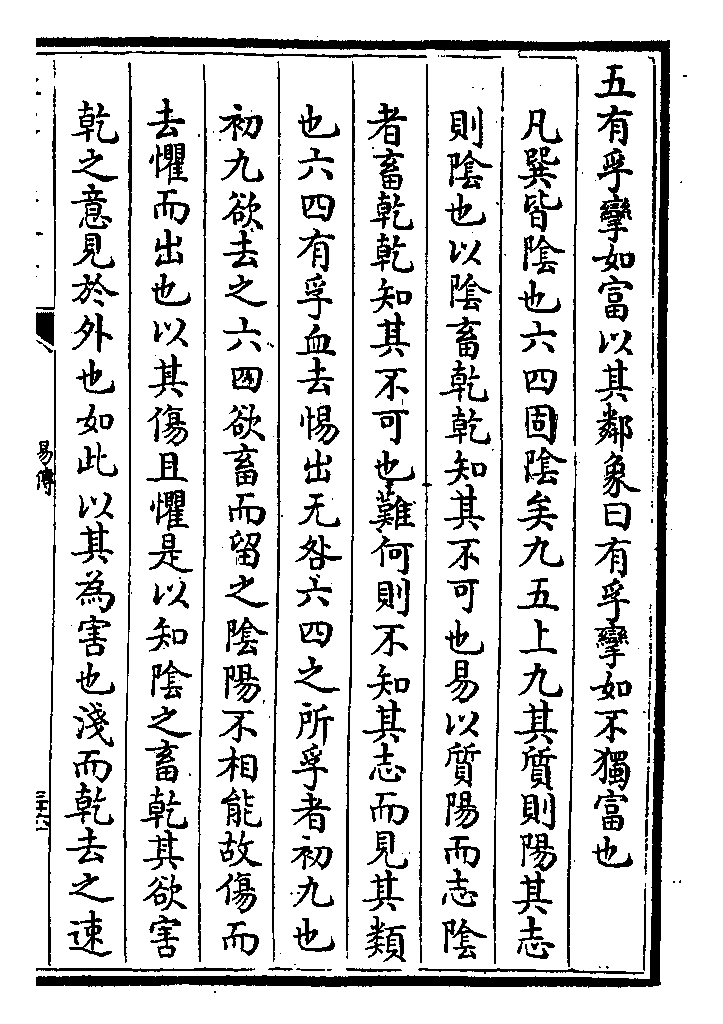 五有孚攣如富以其鄰象曰有孚攣如不獨富也
凡巽皆陰也六四固陰矣九五上九其質則陽其志
則陰也以陰畜乾乾知其不可也易以質陽而志陰
者畜乾乾知其不可也難何則不知其志而見其類
也六四有孚血去惕出无咎六四之所孚者初九也
初九欲去之六四欲畜而留之陰陽不相能故傷而
去懼而出也以其傷且懼是以知陰之畜乾其欲害
乾之意見於外也如此以其為害也淺而乾去之速
易傳